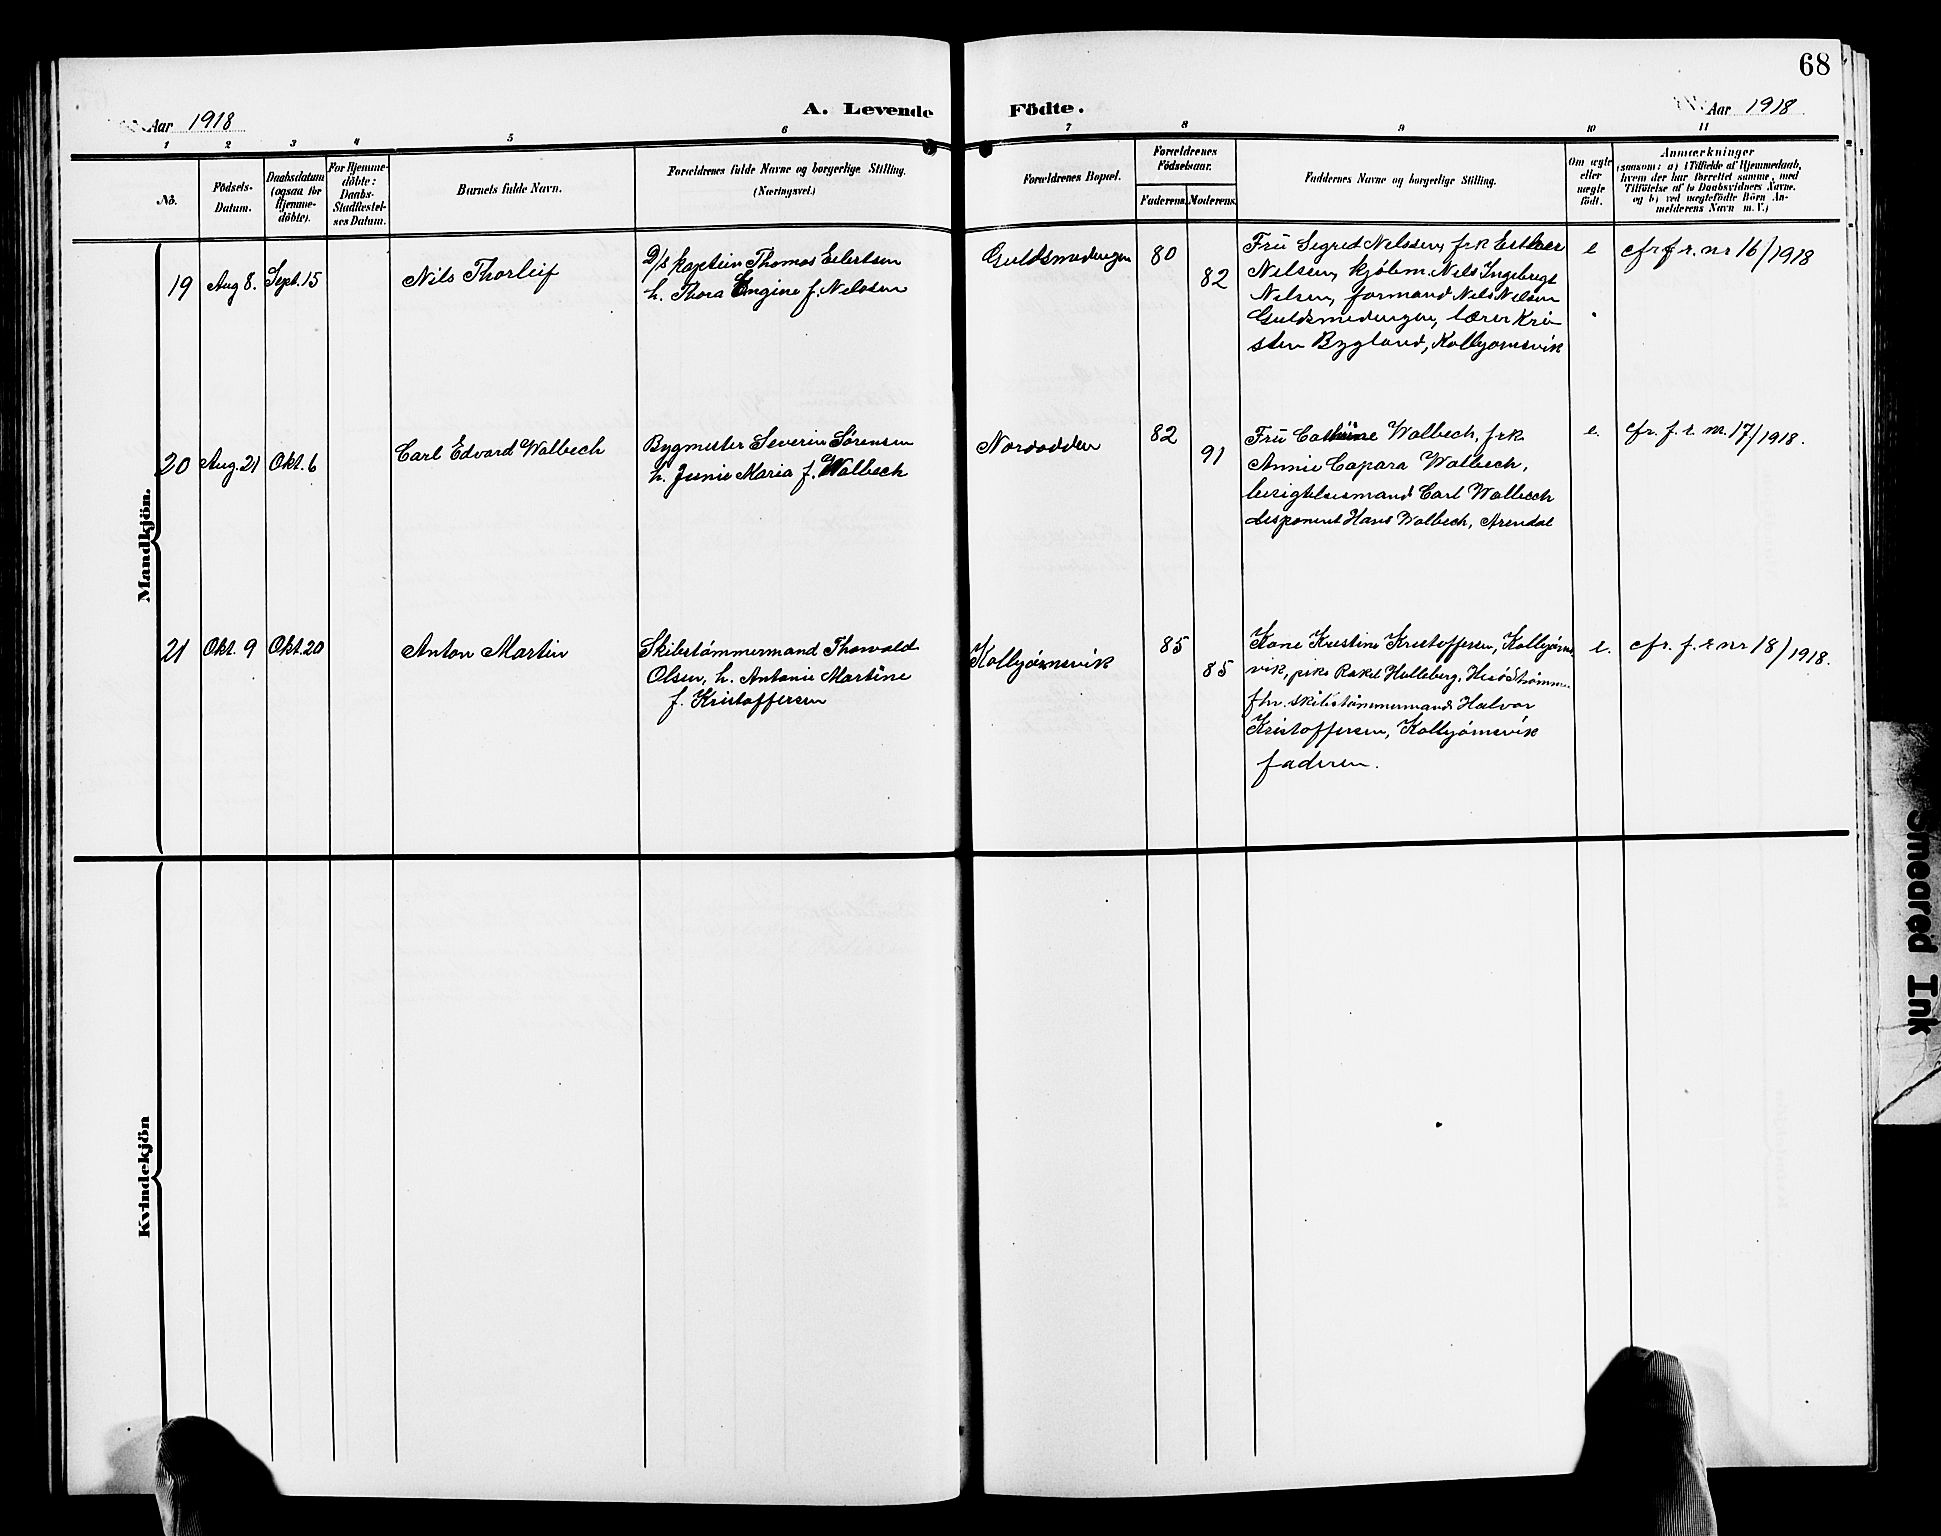 68
Aar 1918
A. Levende Födte.
Aar 1918
1 2 3 4 5 6 7 8 9 10 11
No.
Födsels-
Datum.
Daabsdatum
(ogsaa for
Hjemme-
döbte).
For Hjemme-
döbte:
Daabs-
Stadfæstel-
ses Datum.
Barnets fulde Navn.
Forældrenes fulde Navne og borgerlige Stilling.
(Næringsvei.)
Forældrenes Bopæl.
Forældrenes
Födselsaar.
Faderens. Moderens.
Faddernes Navne og borgerlige Stilling.
Om ægte
eller
uægte
födt.
Anmærkninger
(saasom: a) i Tilfælde af Hjemmedaab,
hvem der har forrettet samme, med
Tilföielse af to Daabsvidners Navne.
og b) ved uægtefödte Börn An-
melderens Navn m. V.)
Mandkjön.
19 Aug 8. Sept. 15
Nils Thorleif
D/s kaptein Thomas Eilertsen
h. Thora Engine f. Nelsen
Guldsmedengen
80
82
Fru Sigrid Nelssen, frk Esther
Nelsen, kjøbm. Nels Ingebregt
Nelsen, formand Nels Nelsen
Guldsmedengen, lærer Kri
sten Bygland, Kolbjørnsvik
e
cfr f. r. nr 16/1918
20 Aug. 21 Okt. 6
Carl Edvard Walbech
Bygmester Severin Sørensen
h. Junie Maria f. Walbech
Nordodden
82
91
Fru Cathrine Walbech, frk
Annie Capara Walbech,
besigtelsesmand Carl Walbech
disponent Hans Walbech, Arendal
e.
cfr. f. r. nr. 17/1918.
21 Okt. 9 Okt. 20
Anton Martin
Skibstømmermand Thorvald
Olsen, h. Antonie Martine
f. Kristoffersen
Kolbjørnsvik
85
85
Kone Kristine Kristoffersen, Kolbjørns
vik, pike Rakel Helleberg, Hisø
skibstømmermand Halvor
Kristoffersen, Kolbjørnsvik
faderen.
e.
cfr. f. r nr 18/1918.
Kvindekjön
Smeared Ink